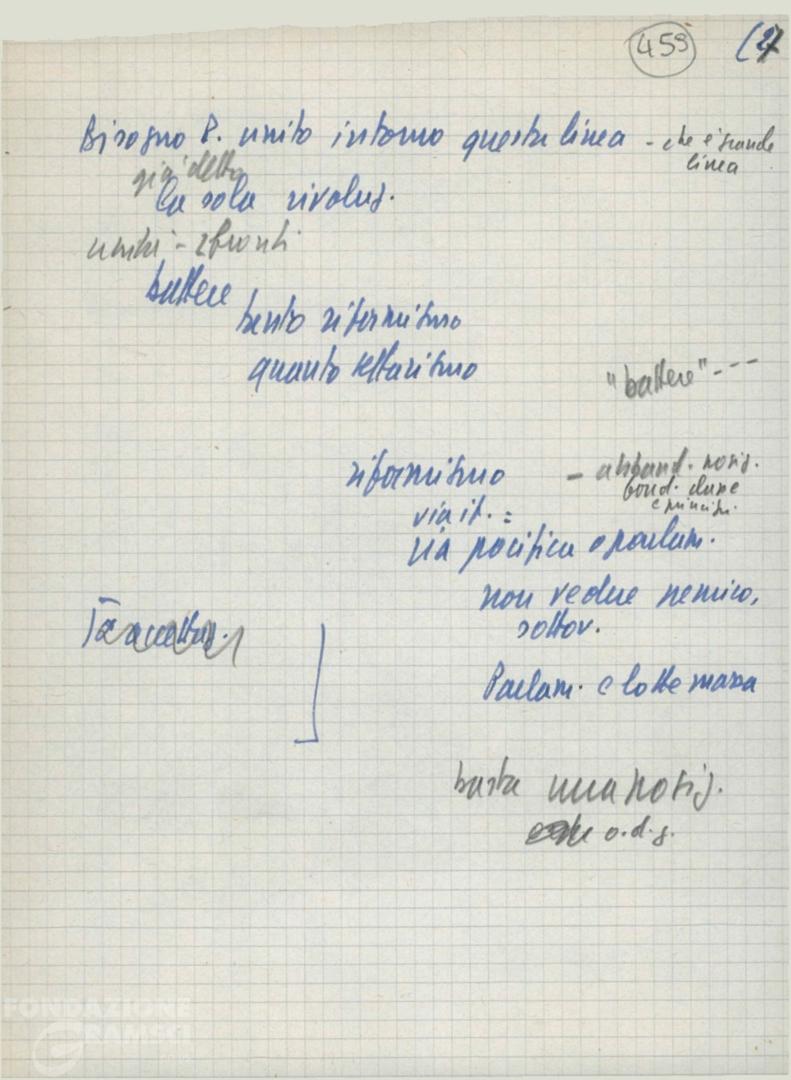 459 (2)
Bisogno P. unito intorno questa linea - che è grande
linea
già detto
la sola rivoluz.
battere
tanto riformismo
quanto settarismo
"battere" - - -
riformismo - abband. posiz.
fond. classe
e princip.
via it. =
via pacifica o parlam.
non vedere nemico,
sottov.
Parlam. e lotte massa
basta una posiz.
o.d.g.
FONDAZIONE
GRAMSCI